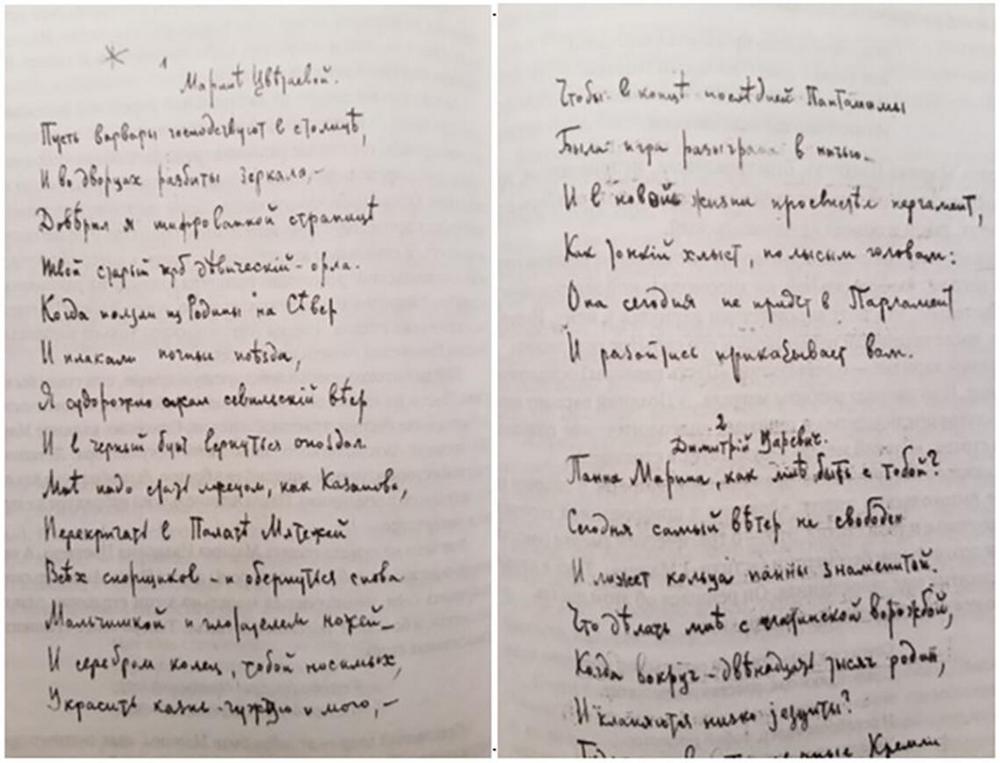 1
Маринѣ Цвѣтаевой.
Пусть варвары господствуют в столицѣ,
И во дворцах разбиты зеркала,–
Довѣрил я шифрованной страницѣ
Твой старый герб дѣвическій – орла.
Когда ползли из Родины на Сѣвер
И плакали ночные поѣзда,
Я судорожно сжал севильскій вѣер
И в черный бунт вернуться опоздал
Мнѣ надо стать мрецом, как Казанова,
Перекричать в Палатѣ Мятежей
Всѣх спорщиков – и обернуться снова
Мальчишкой и глотателем ножей –
И серебром колец, тобой носимых,
Украсить казнь чужую и мою, –
Чтобы в концѣ послѣдней Пантомимы
Была игра разыграна в ничью –
И в новой жизни просвистѣл пергамент,
Как тонкій хлыст, по лысым головам:
Она сегодня не придет в Парламент
И разойтись приказывает вам.
2
Димитрій Царевич.
Панна Марина, как мнѣ быть с тобой?
Сегодня самый вѣтер не свободен
И лижет кольца панны знаменитой.
Что дѣлать мнѣ с латинской ворожбой,
Когда вокруг – двѣнадцать тысяч родин,
И кланяются низко језуиты?
Кремли